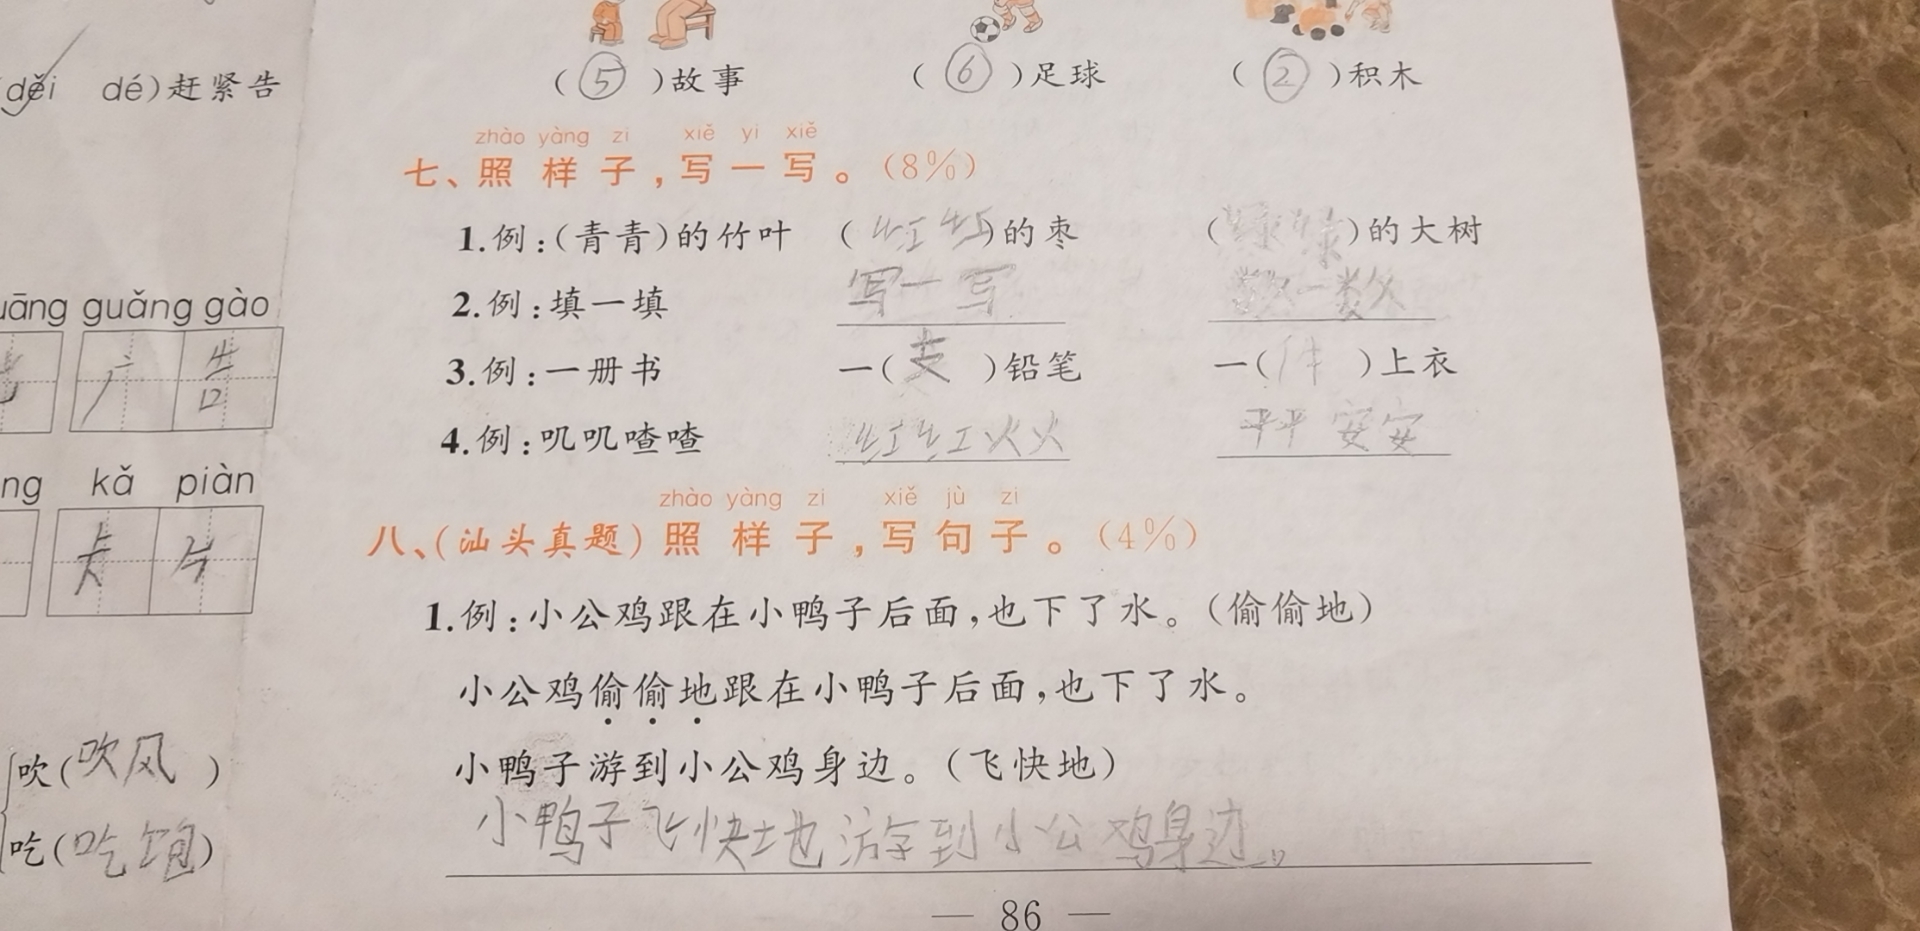 (děi dé)赶紧告
uāng guǎng gào
广告
ng kǎ piàn
卡片
吹(吹风)
吃(吃饱)
(5)故事 (6)足球 (2)积木
zhào yàng zi xiě yi xiě
七、照样子,写一写。(8%)
1.例:(青青)的竹叶 (红红)的枣 (绿绿)的大树
2.例:填一填 写一写 数一数
3.例:一册书 一(支)铅笔 一(件)上衣
4.例:叽叽喳喳 红红火火 平平安安
zhào yàng zi xiě jù zi
八、(汕头真题)照样子,写句子。(4%)
1.例:小公鸡跟在小鸭子后面,也下了水。(偷偷地)
小公鸡偷偷地跟在小鸭子后面,也下了水。
小鸭子游到小公鸡身边。(飞快地)
小鸭子飞快地游到小公鸡身边。
— 86 —